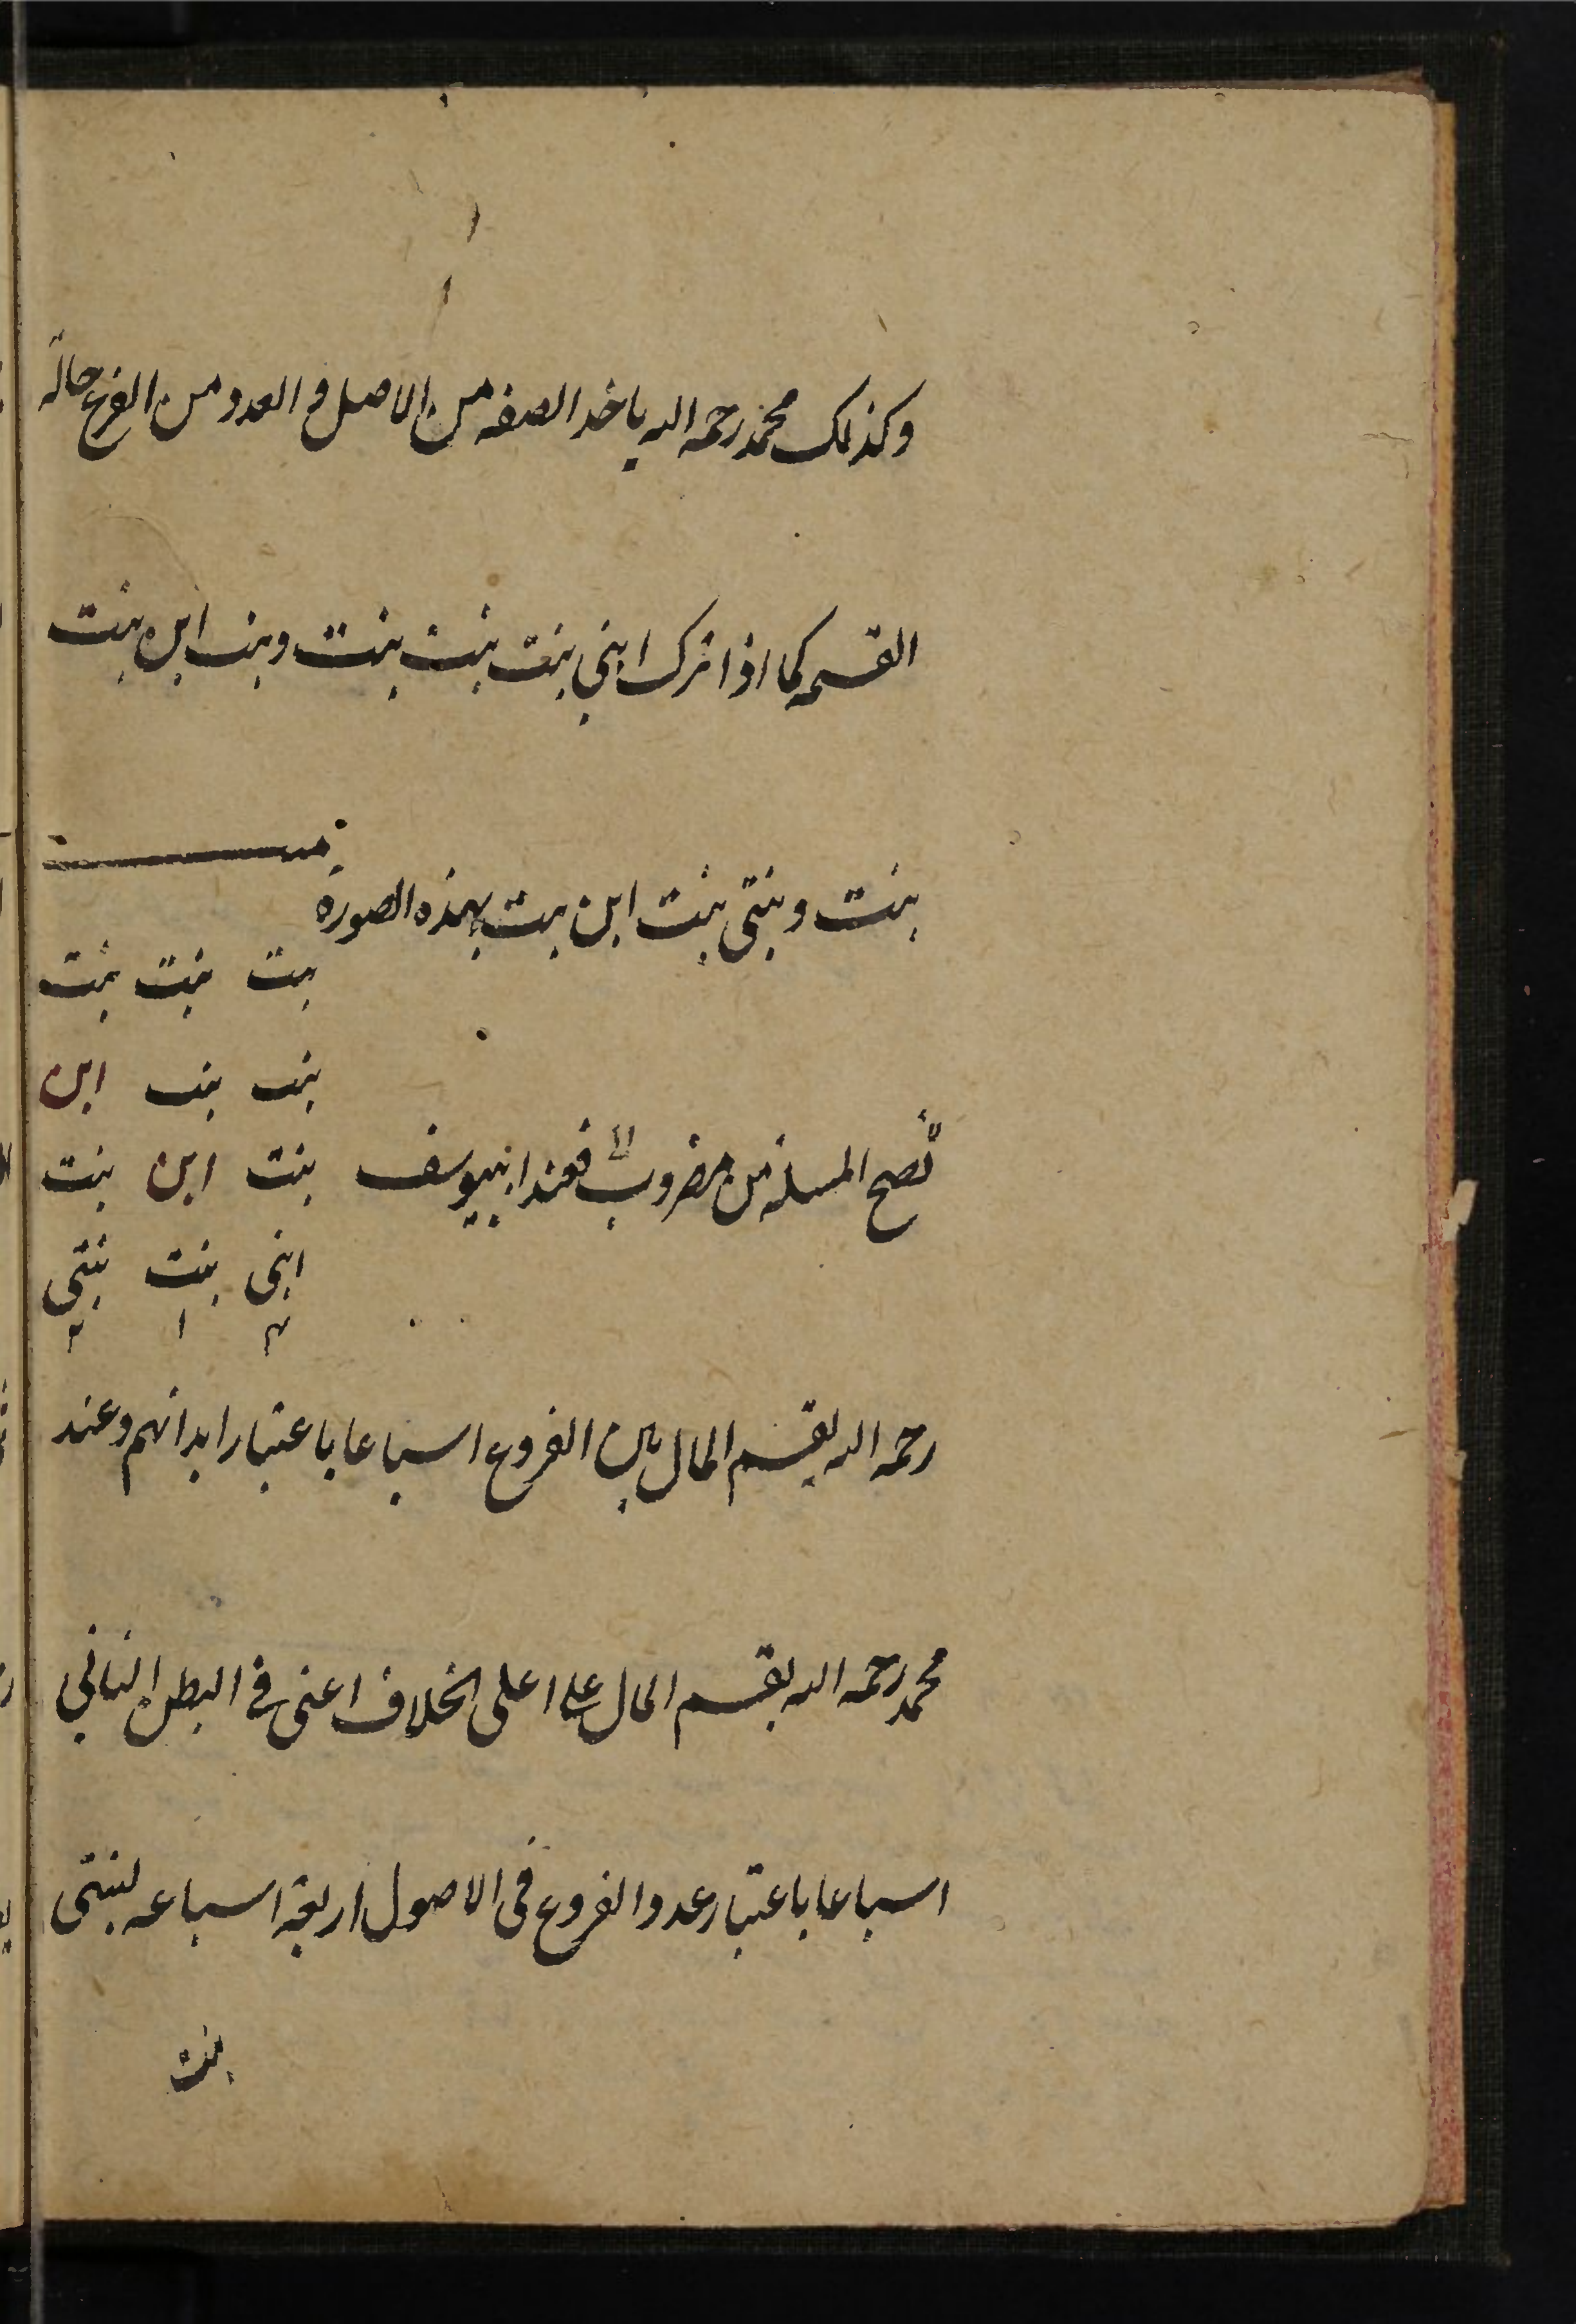 وكذلك محمد رحمه الله ياخذ الصفه من الاصل و العدد من الفرع حالة
القسمه كما اذا ترك ابنى بنت بنت بنت وبنت ابن بنت
بنت وبنتى بنت ابن بنت بهذه الصورة
بنت بنت بنت
بنت بنت ابن
تصح المسئلة من مضروب فعند ابيوسف
بنت ابن بنت
ابنى بنت بنتى
٢ ١ ٢
رحمه الله يقسم المال بين الفروع اسباعا باعتبار ابدانهم وعند
محمد رحمه الله يقسم المال على اعلى الخلاف اعنى فى البطن الثانى
اسباعا باعتبار عدد الفروع فى الاصول اربعة اسباعه لبنتى
بنت